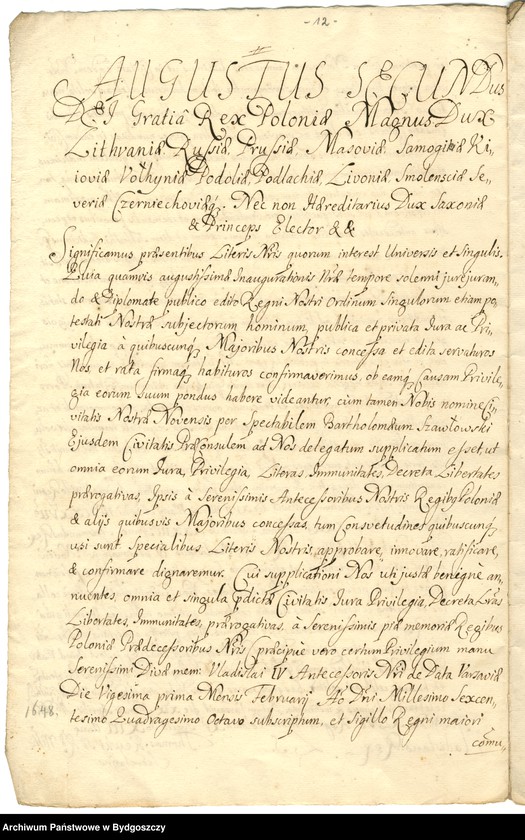 - 12 -
AUGUSTUS SECUNDus
DEI Gratia Rex Poloniæ Magnus Dux
Lithvaniæ, Russiæ Prussiæ, Masoviæ, Samogitiæ Ki-
ioviæ Volhyniæ Podoliæ, Podlachiæ, Livoniæ Smolensciæ Se-
veriæ Czerniechoviæq3. Nec non Hæreditarius Dux Saxoniæ
& Princeps Elector & &
Significamus præsentibus Literis Nris quorum interest Universis et singulis.
Quia quamvis augustissimæ Inaugurationis Nræ tempore solemni jurejuran-
do & Diplomate publico edito Regni Nostri Ordinum singulorum etiam po-
testati Nostræ subjectorum hominum, publica et privata Iura ac Pri-
vilegia à quibuscunq3 Majoribus Nostris concessa et edita servaturos
Nos, et rata firmaq3 habituros confirmaverimus, ob eamq3 Causam Privile-
gia eorum suum pondus habere videantur, cùm tamen Nobis nomine Ci-
vitatis Nostræ Novensis per Spectabilem Bartholomæum Szawłowski
Ejusdem Civitatis PræConsulem ad Nos delegatum supplicatum esset, ut
omnia eorum Iura, Privilegia, Literas, Immunitates, Decreta Libertates
prærogativas, Ipsis à Serenissimis Antecessoribus Nostris Regib9 Poloniæ
& alijs quibusvis Majoribus concessas, tum Consvetudines quibuscunq3
usi sunt specialibus Literis Nostris, approbare, innovare, ratificare,
& confirmare dignaremur. Cui supplicationi Nos uti justæ benignè an-
nuentes, omnia et singula pdictæ Civitatis Iura Privilegia, Decreta Lras
Libertates, Immunitates, prærogativas, à Serenissimis piæ memoriæ Regibus
Poloniæ Prædecessoribus Nris (præcipuè vero certum Privilegium manu
Serenissimi Divæ mem: Vladislai IV Antecessoris Nri de Data Varsaviæ
Die Vigesima prima Mensis Februarij Ao Dni Millesimo Sexcen-
1648.
tesimo Quadragesimo Octavo subscriptum, et sigillo Regni maiori
commu-
Archiwum Państwowe w Bydgoszczy